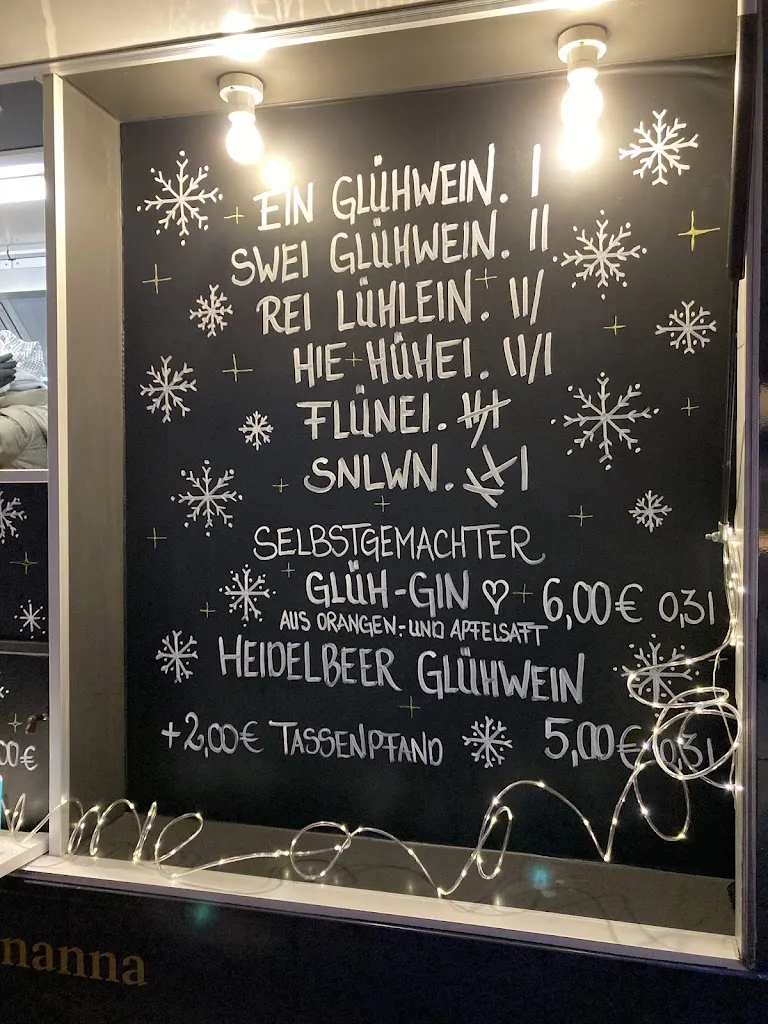 EIN GLÜHWEIN. |
SWEI GLÜHWEIN. ||
REI LÜHLEIN. ||/
HIE HÜHEI. ||/|
FLÜNEI.
SNLWN.
SELBSTGEMACHTER
GLÜH-GIN ♡ 6,00€ 0,3l
AUS ORANGEN- UND APFELSAFT
HEIDELBEER GLÜHWEIN
+2,00€ TASSENPFAND 5,00€ 0,3l
00€
nanna